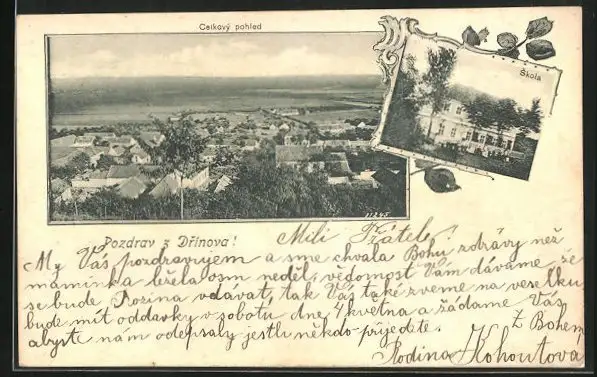 Celkový pohled
Škola
11245
Pozdrav z Dřínova!
Milí Přátele!
My Vás pozdravujem a sme chvala Bohu zdrávy než
maminka ležela osm neděl, vědomost Vám dáváme, že
se bude Rozina vdávat, tak Vás také zveme na veselku
bude mít oddavky v sobotu dne 7 května a žádáme Vás
abyste nám odepsaly jestli někdo přijedete.
Z Bohem
Rodina Kohoutová